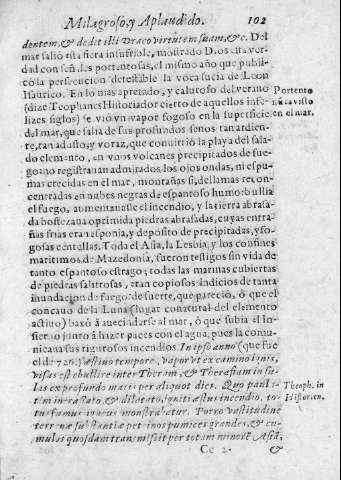 Milagroso, y Aplaudido. 102
dentem, & dedit illi Draco virtutem suam, &c. Del
mar salió esta fiera insufrible, mostrado Dios esta ver-
dad con señales portentosas, el mismo año que publi-
cò la persecucion detestable la voca sucia de Leon
Isaurico. En lo mas apretado, y caluroso del verano
(dize Teophanes Historiador cierto de aquellos infe-
lizes siglos) se viò vn vapor fogoso en la superficie
del mar, que salia de sus profundos senos tan ardien-
te, tan adusto, y voraz, que convirtiò la playa del sala-
do elemento, en vnos volcanes precipitados de fue-
go: no registrauan admirados los ojos ondas, ni espu-
mas crecidas en el mar, montañas si, de llamas recon-
centradas en nubes negras de espantoso humo: bullia
el fuego, aumentauase el incendio, y la tierra abrasa-
da bostezaua optimida piedras abrasadas, cuyas entra-
ñas frias eran esponja, y deposito de precipitadas, y fo-
gosas centellas. Toda el Asia, la Lesbia, y los confines
maritimos de Mazedonia, fueron testigos sin vida de
tanto espantoso estrago; todas las marinas cubiertas
de piedras salitrosas, eran copiosos indicios de tanta
inundacion de fuego: de suerte, que pareciò, ò que el
concauo de la Luna (lugar conatural del elemento
actiuo) baxò à avecindarse al mar, ò que subia el In-
fierno junto à hazer pazes con el agua, pues la comu-
nicaua sus rigurosos incendios. In ipso anno (que fue
el de 726.) æstiuo tempore, vapor vt ex camino ignis,
visus est ebullire inter Theram, & Therasiam insu-
las ex profundo maris per aliquot dies. Quo pauli-
tim inerassato, & dilatato, igniti æstus incendio, to-
tus fumus igneus monstrabatur. Porro vastitudine
terrenæ substantiæ petrinos pumices grandes, & cu-
mulos quosdam transmissit per totam minorē Asiā,
Cc 2. &
Portento
nũca visto
en el mar.
Theoph. in
Historian.